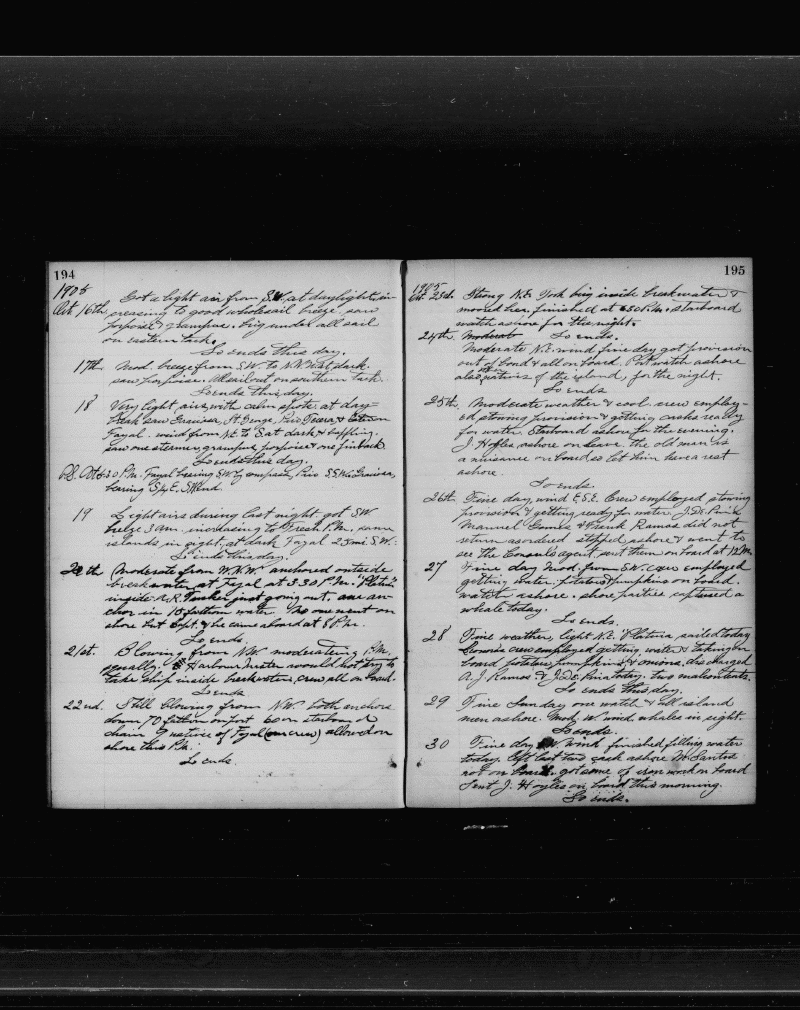 194
1905
Oct 16th Got a light air from S.W. at daylight in-
creasing to good wholesail breeze. saw
porpoise & grampus. brig under all sail
on eastern tack.
So ends this day.
17th Mod. breeze from S.W. to N.W. at dark.
saw porpoise. All sail out on southern tack.
So ends this day.
18 Very light airs with calm spots. at day-
break saw Graciosa, St George, Pico & 
Fayal. wind from to S. at dark & baffling.
saw one steamer, grampus, porpoise & one finback.
So ends this day.
P.S. Oct 6.30 P.M. Fayal bearing S.W. by compass, Pico S.S.W. Graciosa,
bearing S by E. S.W. end.
19 Light airs during last night. got S.W.
breeze 3 am. increasing to Fresh P.M., some
islands in sight, at dark Fayal 25 mi. S.W.:
So ends this day.
20th Moderate from W.N.W. anchored outside
breakwater at Fayal at 3.30 P.M. "Platina"
inside A.R. Tucker just going out. one an-
chor in 18 fathom water. No one went on
shore but Capt. & he came aboard at 8 P.M.
So ends.
21st. Blowing from N.W. moderating P.M.,
squally. Harbour Master would not try to
take ship inside breakwater, crew all on board.
So ends
22nd. Still blowing from N.W. both anchors
down 70 fathom on port 60 on starboard
chain 9 natives of Fayal (our crew) allowed on
shore this P.M.
So ends
195
1905
Oct 23d. Strong N.E. Took brig inside breakwater &
moored her, finished at P.M. starboard
watch ashore for this night.
So ends.
24th Moderate
Moderate N.E. wind fine day got provision
out of bond & all on board. Port watch ashore
also natives of the island, for the night.
So ends
25th Moderate weather & cool crew employ-
ed stowing provision & getting casks ready
for water. Starboard ashore for the evening.
J. Hoyles ashore on leave. the old man is
a nuisance on board so let him have a rest
ashore.
So ends
26th Fine day, wind E.S.E. Crew employed stowing
provision & getting ready for water. J. De Pina
Manuel Gomes & Frank Ramos did not
return as ordered stopped ashore & went to
see the Consuls agent, sent them on board at 12 M.
27 Fine day Mod. from S.W. crew employed
getting water. potatoes & pumpkins on board.
watch ashore. shore parties captured a
whale today.
So ends.
28 Fine weather, light N.E. Platina sailed today
crew employed getting water & taking on
board potatoes, pumpkins & onions, discharged
A. J. Ramos & J. De Pina today. two malcontents.
So ends this day.
29 Fine Sunday one watch & all island
men ashore. Mod. W. wind whales in sight.
So ends.
30 Fine day S.W. wind finished filling water
today. left last two cask ashore M. Santos
not on board. got some of iron work on board
Sent J. Hoyles on board this morning.
So ends.